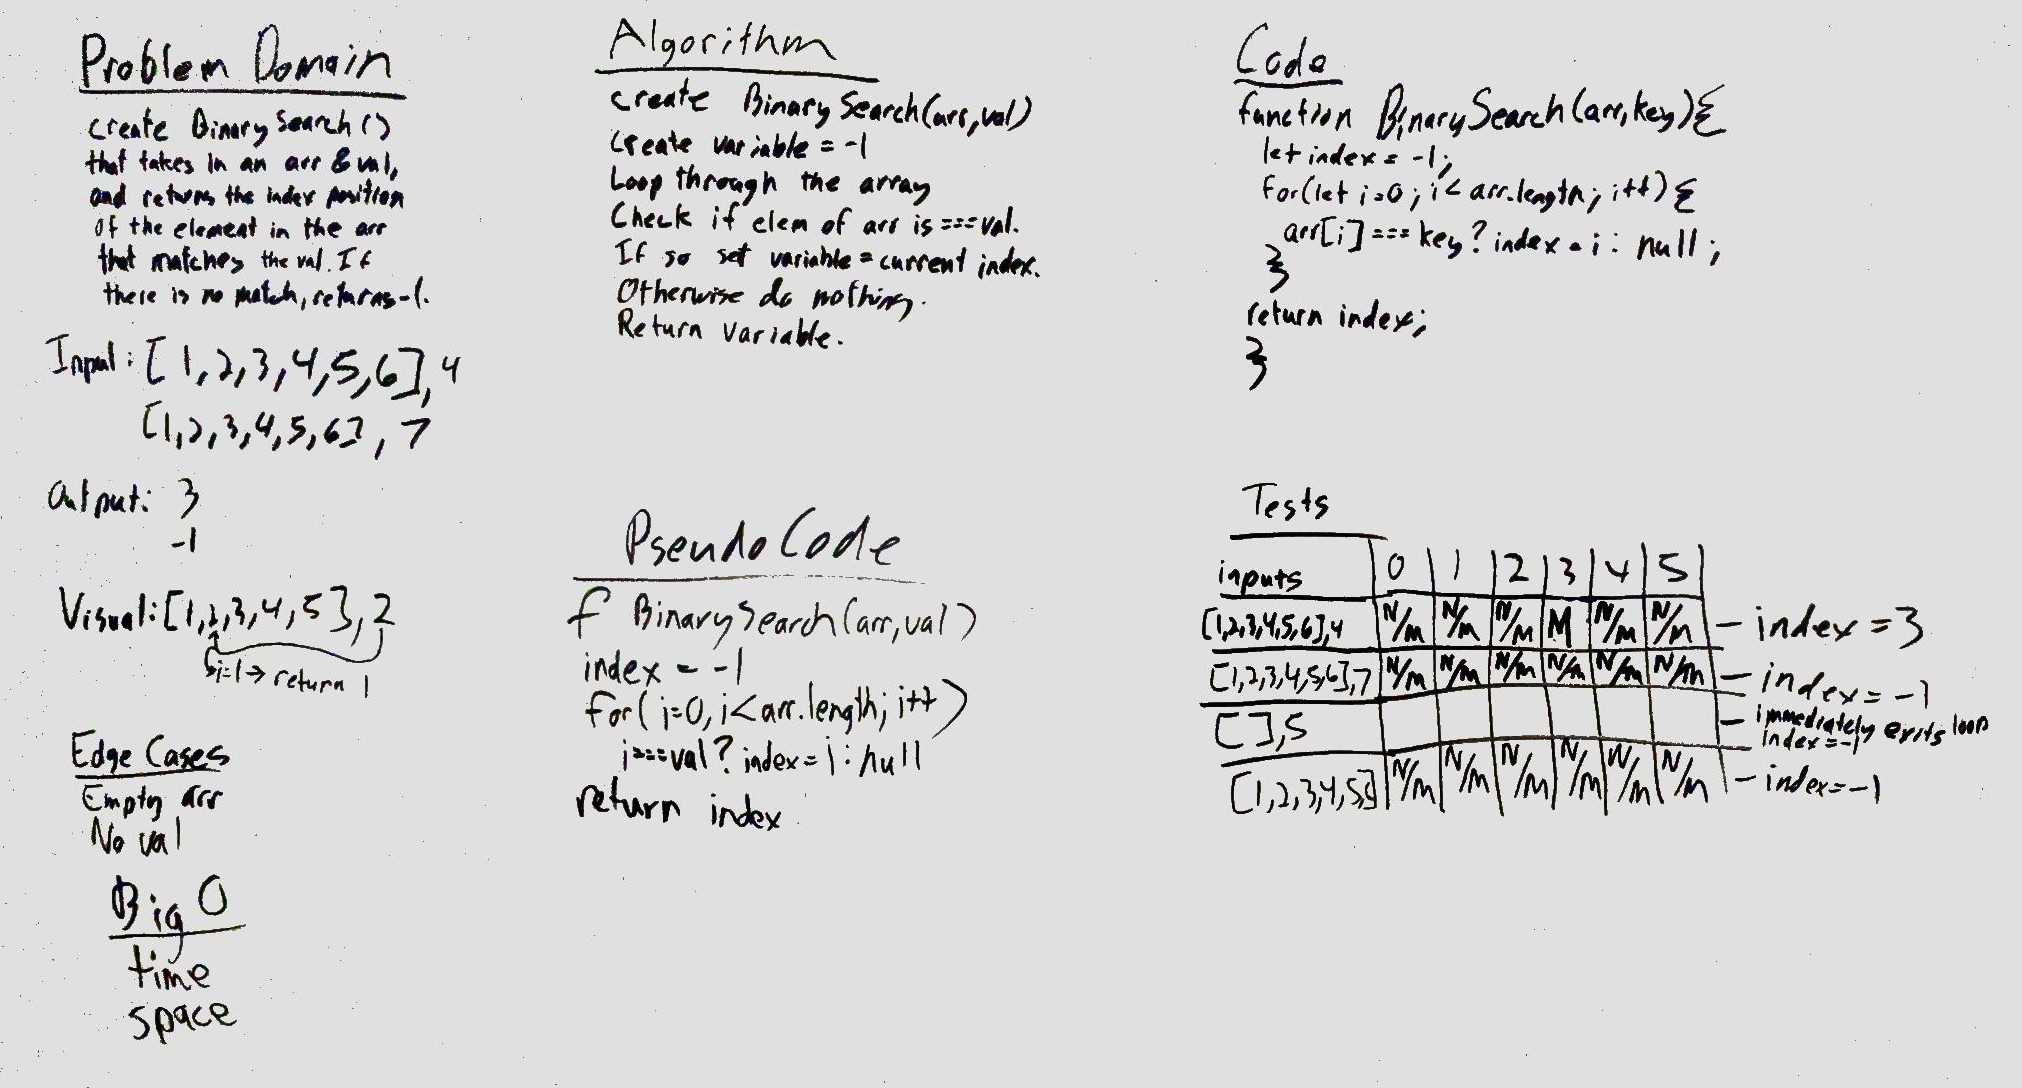 Problem Domain
create BinarySearch()
that takes in an arr & val,
and returns the index position
of the element in the arr
that matches the val. If
there is no match, returns -1.
Input: [1,2,3,4,5,6],4
[1,2,3,4,5,6],7
Output: 3
-1
Visual: [1,2,3,4,5],2
i=1→ return 1
Edge Cases
Empty arr
No val
Big O
time
space
Algorithm
create BinarySearch(arr,val)
Create variable = -1
Loop through the array
Check if elem of arr is === val.
If so set variable = current index.
Otherwise do nothing.
Return variable.
PseudoCode
f BinarySearch(arr,val)
index = -1
for(i=0, i<arr.length; i++)
i===val? index=i : null
return index
Code
function BinarySearch(arr,key){
let index = -1;
for(let i=0; i< arr.length; i++){
arr[i]===key? index = i : null;
}
return index;
}
Tests
inputs 0 1 2 3 4 5
[1,2,3,4,5,6],4 N/m N/m N/m M N/m N/m - index = 3
[1,2,3,4,5,6],7 N/m N/m N/m N/m N/m N/m - index = -1
[],5 - immediately exits loop
index=-1
[1,2,3,4,5,6] N/m N/m N/m N/m N/m N/m - index=-1